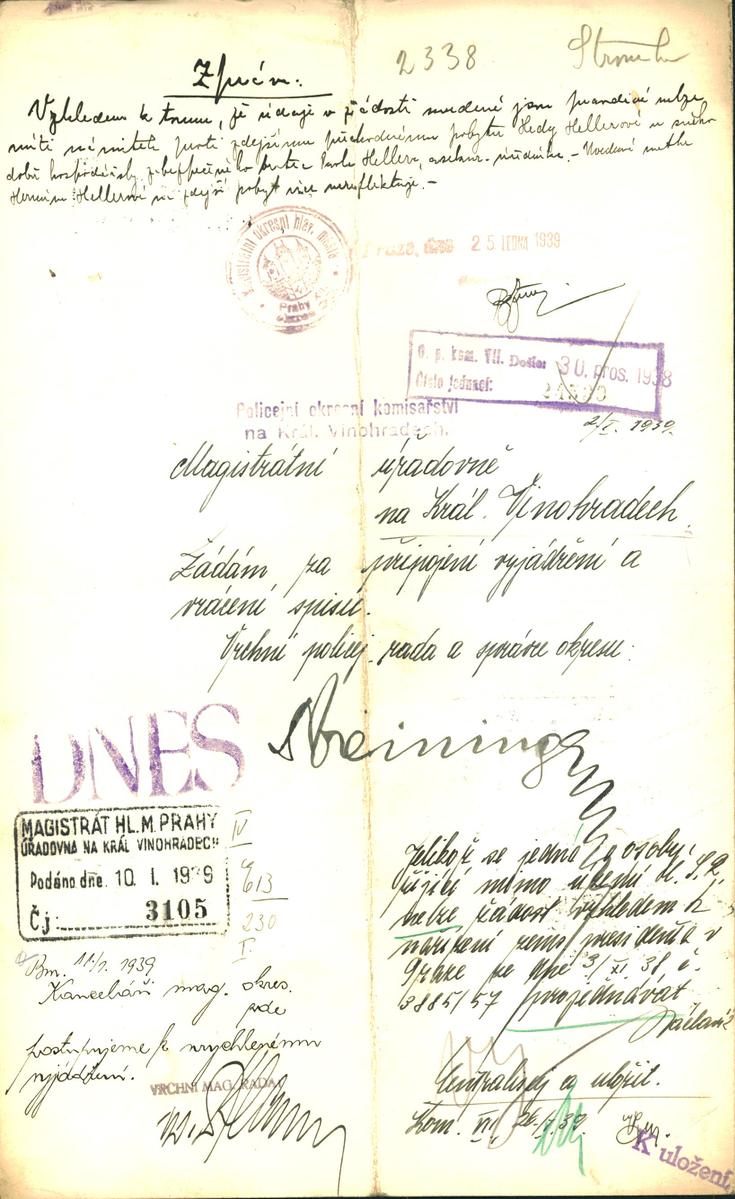 2338
Zpráva:
Vzhledem k tomu, že údaje v žádosti uvedené jsou pravdivé nelze
míti námitek proti zdejšímu přechodnému pobytu Hedy Hellerové u svého
dobře hospodářsky zabezpečeného bratra Pavla Hellera, asekur. úředníka. – Uvedená matka
Hermina Hellerová na zdejší pobyt více nereflektuje. –
Magistrátní okresní hlav. města
Prahy
Praze, dne 25 LEDNA 1939
O. p. kom. VII. Došlo: 30. pros. 1938
Číslo jednací:
Policejní okresní komisařství
na Král. Vinohradech.
2/I. 1939.
Magistrátní úřadovně
na Král. Vinohradech.
Žádám za připojení vyjádření a
vrácení spisu.
Vrchní policej. rada a správce okresu:
DNES
MAGISTRÁT HL. M. PRAHY
ÚŘADOVNA NA KRÁL VINOHRADECH
Podáno dne 10. I. 1939
Čj. 3105
IV
613
230
I.
11/1. 1939
Kanceláři mag. okres.
zde
postupujeme k urychlenému
vyjádření.
VRCHNÍ MAG. RADA
Jelikož se jedná o osoby,
žijící mimo území Č. S. R.
nelze žádost vzhledem k
nařízení zems. presidenta v
Praze ze dne 3/XI. 38 č.
3885/57 projednávat
Centralisuj a uložit.
Kom. VII. 26/I. 39.
K uložení.